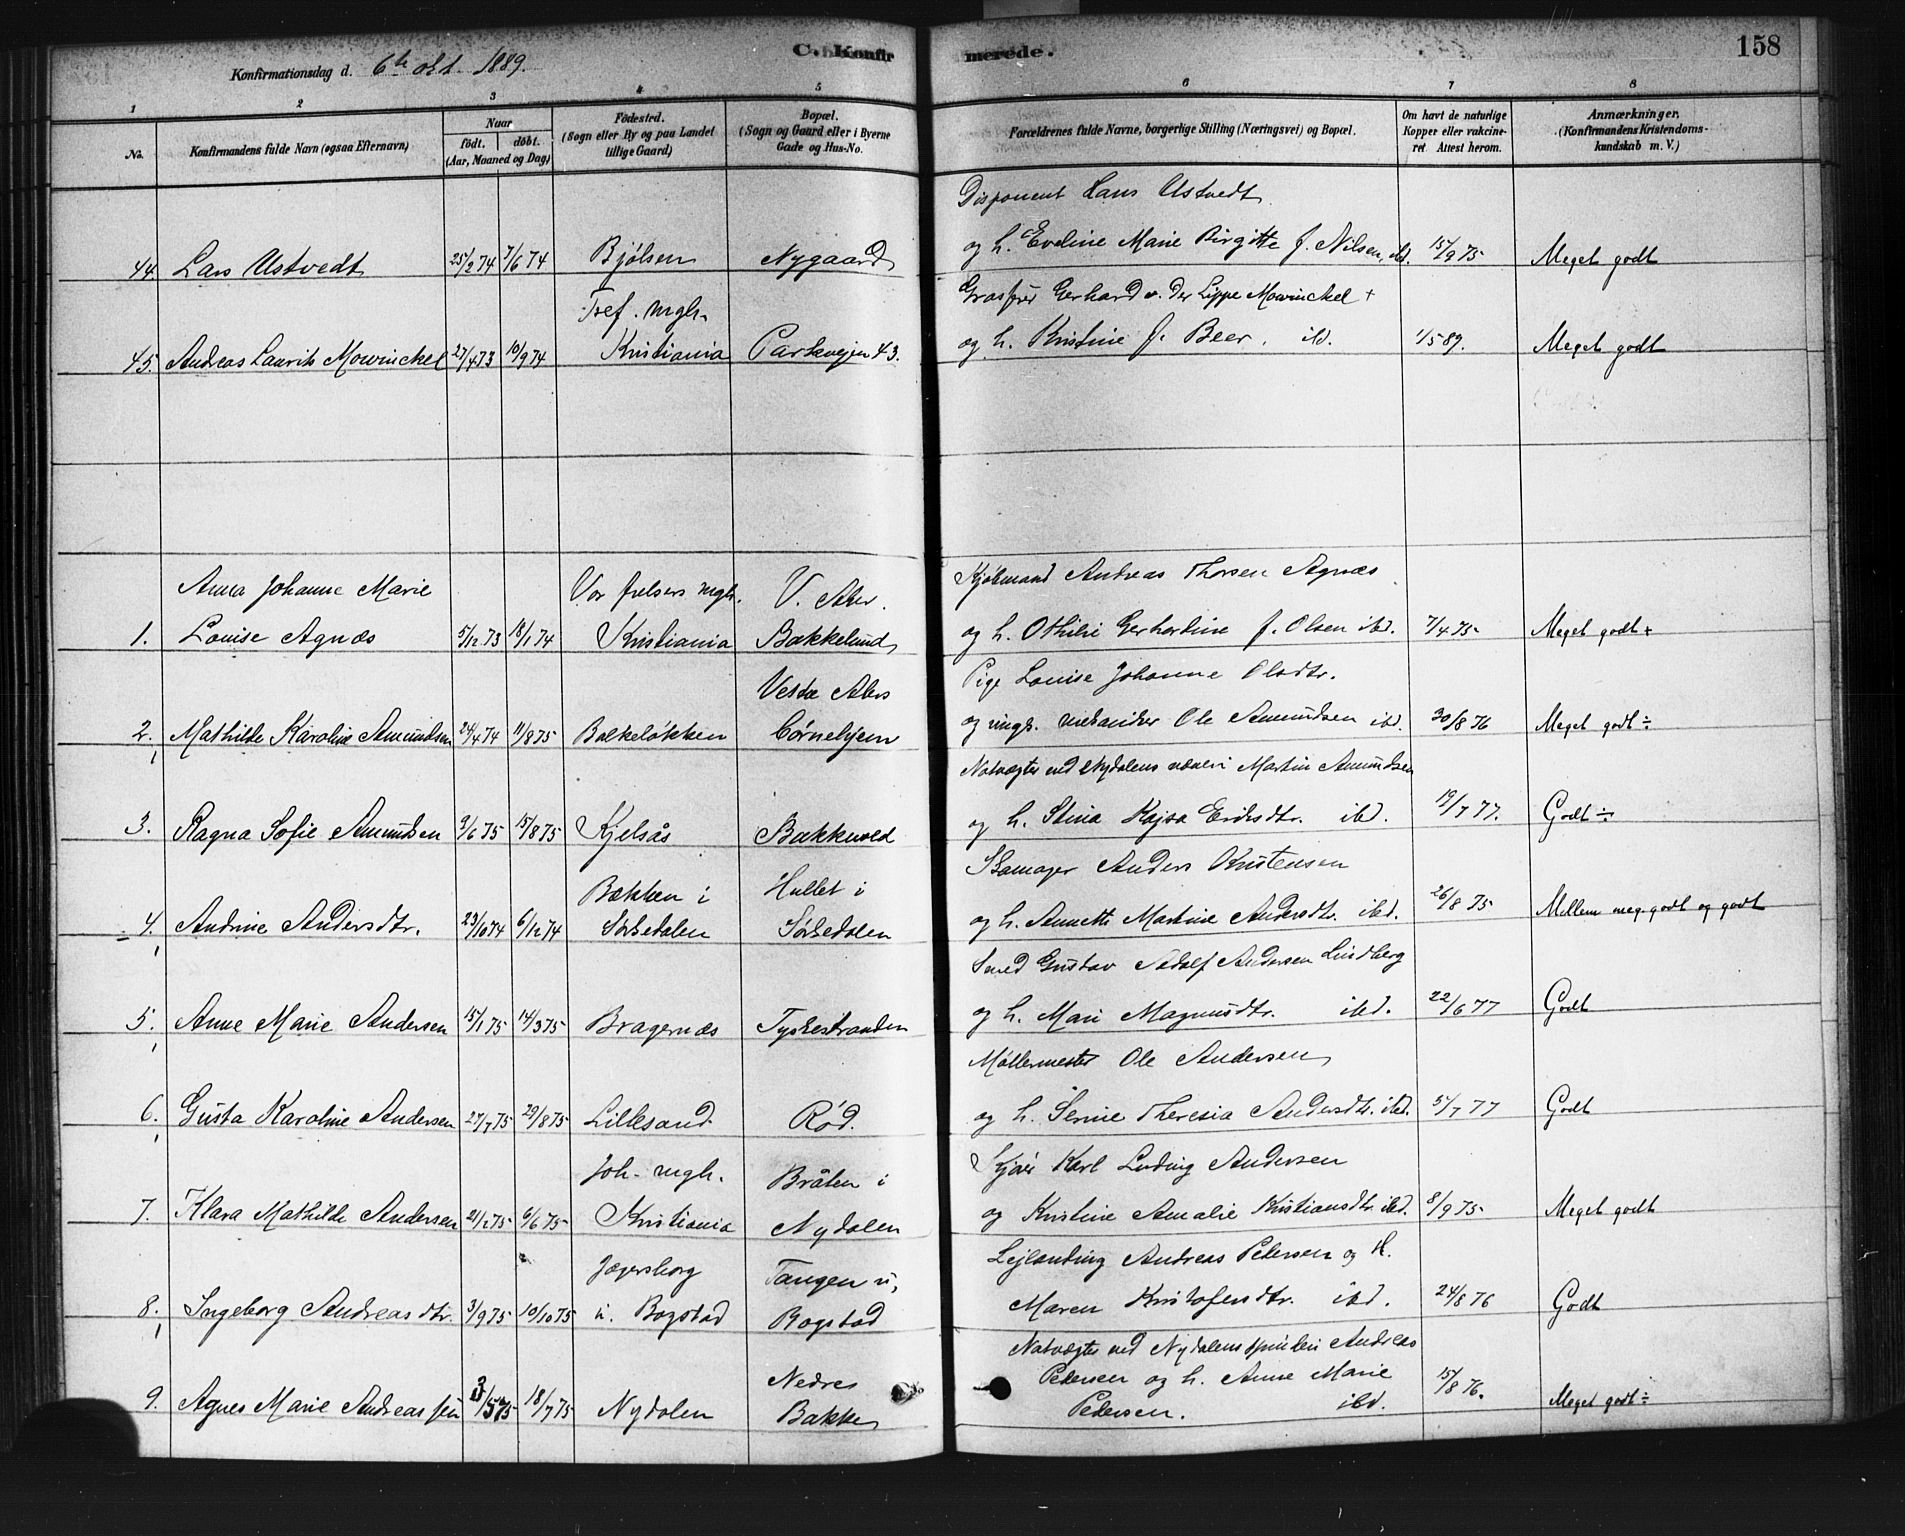 Konfirmationsdag d. 6te okt. 1889.
C. Konfirmerede.
158
1 2 3 4 5 6 7 8
No.
Konfirmandens fulde Navn (ogsaa Efternavn)
Naar
født. døbt.
(Aar, Maaned og Dag)
Fødested.
(Sogn eller By og paa Landet
tillige Gaard)
Bopæl.
(Sogn og Gaard eller i Byerne
Gade og Hus-No.
Forældrenes fulde Navne, borgerlige Stilling (Næringsvei) og Bopæl.
Om havt de naturlige
Kopper eller vakcine-
ret Attest herom.
Anmærkninger.
(Konfirmandens Kristendoms-
kundskab m. V.)
Disponent Hans Ustvedt
44. Lars Ustvedt 25/2 74 7/6 74 Bjølsen Nygaard og h. Eveline Marie Birgitte f. Nilsen, ibd. 15/9 75 Meget godt
Tref. mgh. Grosserer Gerhard v. der Lippe Mowinckel +
45. Andreas Laurits Mowinckel 27/4 73 10/9 74 Kristiania Parkvejen 43. og h. Kristine f. Beer. ibd. 1/5 89. Meget godt
Anna Johanne Marie Vor frelsers mgh. V. Aker. Kjøbmand Andreas Thorsen Agnæs
1. Louise Agnæs 5/12 73 18/1 74 Kristiania Bakkelund og h. Othilie Gerhardine f. Olsen ibd. 7/4 75 Meget godt +
Vestre Akers Pige Louise Johanne Olsdtr.
2. Mathilde Karoline Amundsen 24/4 74 11/8 75 Bakkeløkken Hjørnehjem og ungk. mekaniker Ole Amundsen ibd. 30/8 76 Meget godt ÷
Natvægter ved Nydalens væveri Martin Amundsen
3. Ragna Sofie Amundsen 9/6 75 15/8 75 Kjelsås Bakkevold og h. Stina Kajsa Eriksdtr. ibd. 19/7 77. Godt ÷
Bækken i Hullet i Skomager Anders Kristensen
4. Andrine Andersdtr. 23/10 74 6/12 74 Sørkedalen Sørkedalen og h. Annette Martine Andersdtr. ibd. 26/8 75 Mellem meg. godt og godt
Smed Gustav Adolf Andersen Lindberg
5. Anne Marie Andersen 15/1 75 14/3 75 Bragernæs Tyskestranden og h. Mari Magnusdtr. ibd. 22/6 77 Godt
Møllermester Ole Andersen
6. Gusta Karoline Andersen 27/7 75 29/8 75 Lillesand Rød. og h. Serine Theresia Andersdtr. ibd. 5/7 77 Godt
Joh. mgh. Bråten i Kjører Karl Ludvig Andersen
7. Klara Mathilde Andersen 21/2 75 6/6 75 Kristiania Nydalen og Kristine Amalie Kristiansdtr ibd. 8/9 75 Meget godt
Jægersborg Tangen u. Lejlending Andreas Petersen og H.
8. Ingeborg Andreasdtr. 3/9 75 10/10 75 u. Bogstad Bogstad Maren Kristofersdtr. ibd. 24/8 76 Godt
Natvægter ved Nydalens spinderi Andreas
Nedre Petersen og h. Anne Marie 15/8 76.
9. Agnes Marie Andreassen 3/5 75 18/7 75 Nydalen Bakke Petersen. ibd. Meget godt ÷